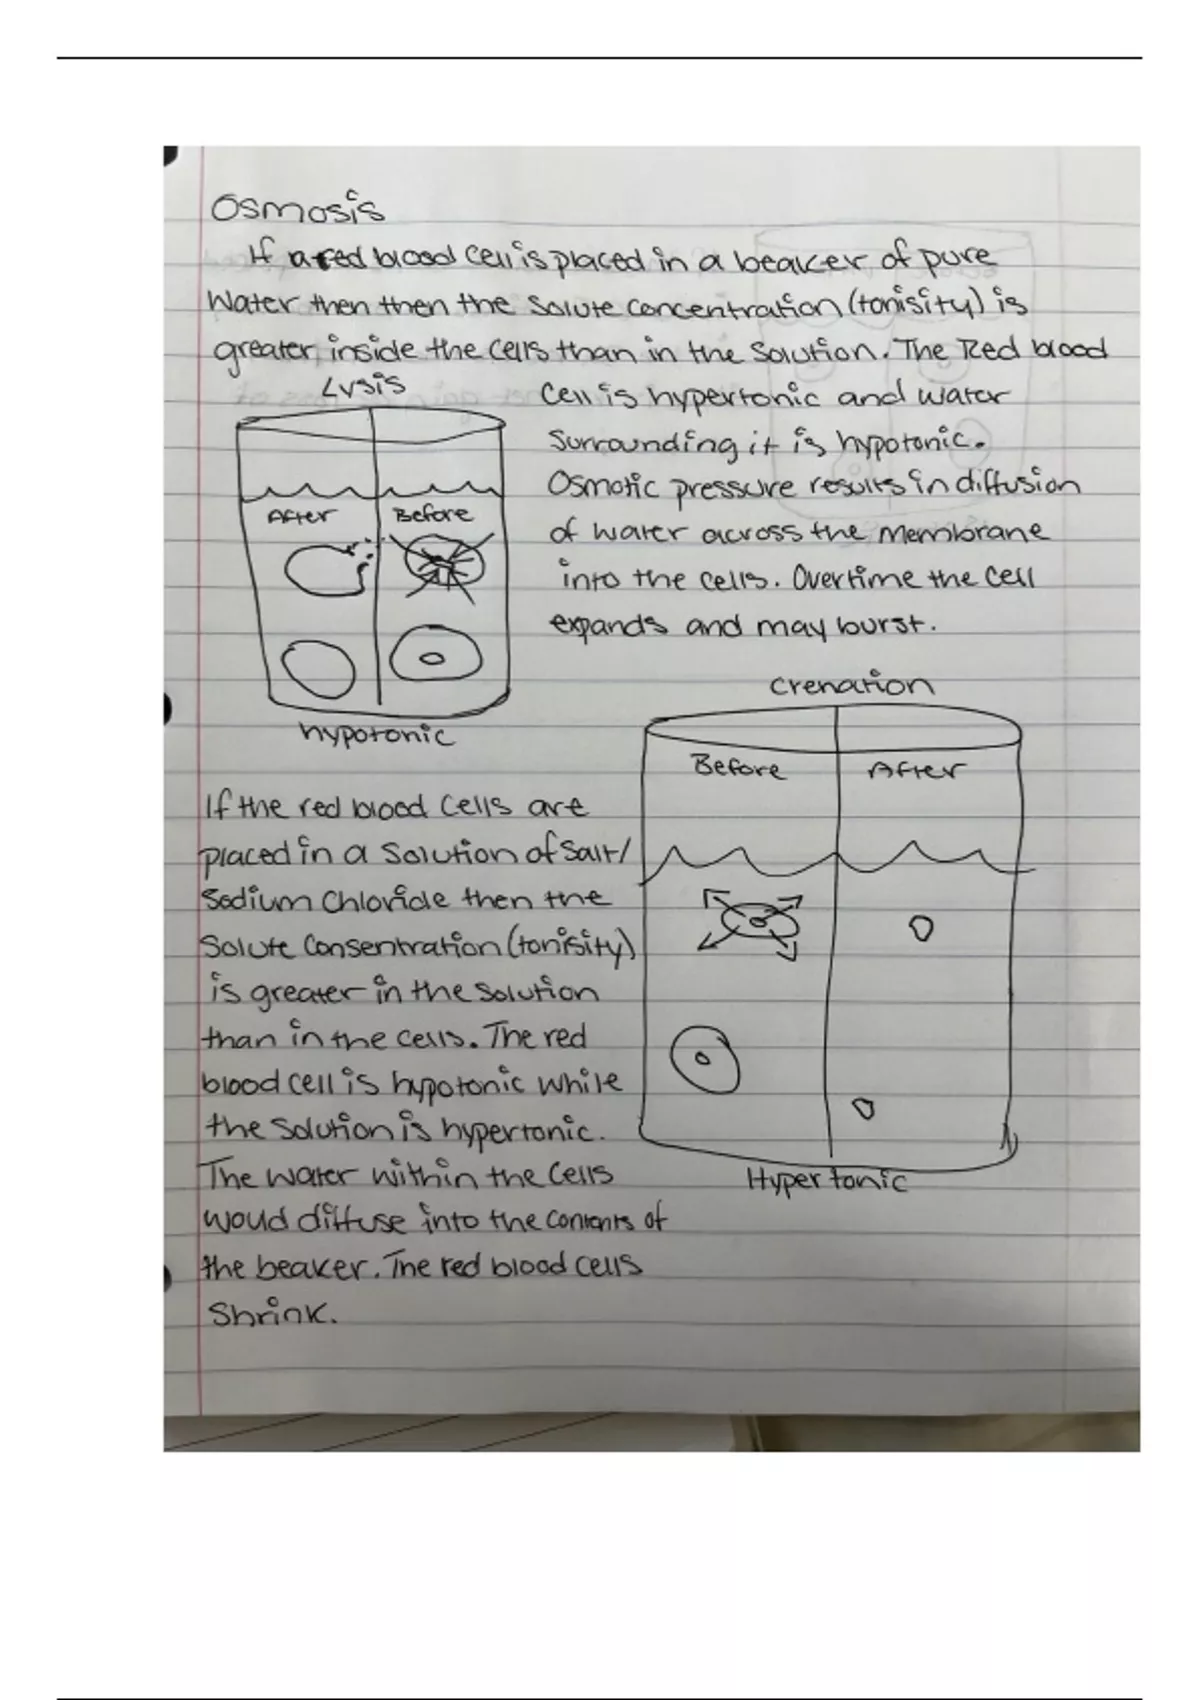 Osmosis
If a red blood cell is placed in a beaker of pure
Water then then the solute concentration (tonisity) is
greater inside the cells than in the solution. The Red blood
Lysis
cell is hypertonic and water
surrounding it is hypotonic.
Osmotic pressure results in diffusion
of water across the membrane
into the cells. Overtime the cell
expands and may burst.
After Before
hypotonic
crenation
Before After
Hypertonic
If the red blood cells are
placed in a solution of salt/
Sodium Chloride then the
Solute Consentration (tonisity)
is greater in the solution
than in the cells. The red
blood cell is hypotonic while
the solution is hypertonic.
The water within the cells
woud diffuse into the contents of
the beaker. The red blood cells
Shrink.